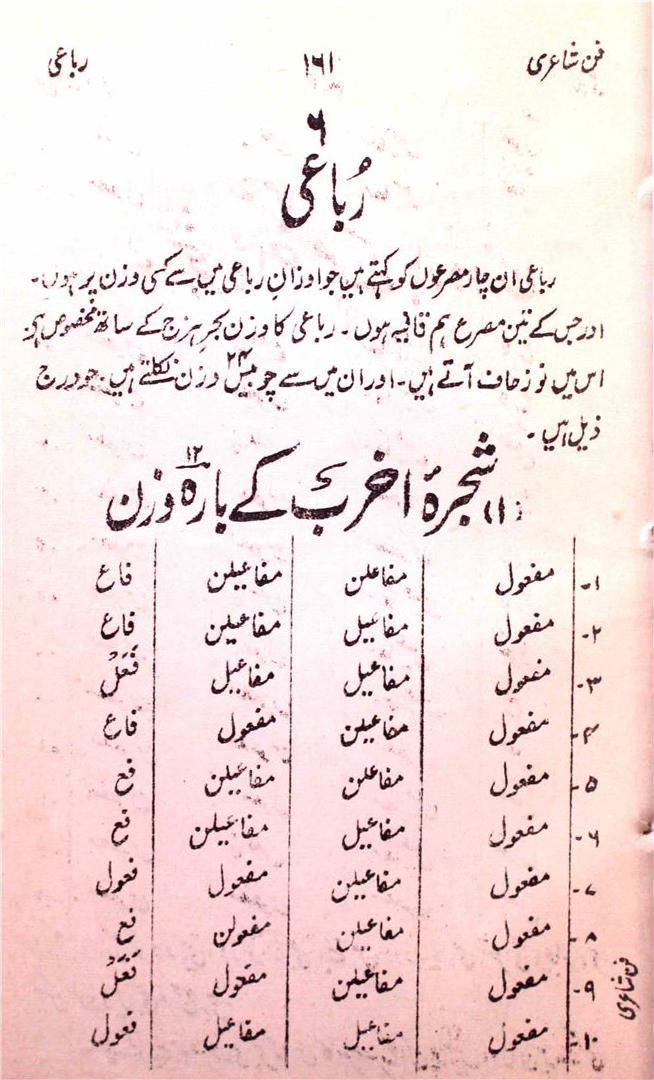 فن شاعری ۱۶۱ رباعی
۶
رُباعی
رباعی ان چار مصرعوں کو کہتے ہیں جو اوزانِ رباعی میں سے کسی وزن پر ہوں۔
اور جس کے تین مصرع ہم قافیہ ہوں۔ رباعی کا وزن بحرِ ہزج کے ساتھ مخصوص ہے
اس میں نو زحاف آتے ہیں۔ اور ان میں سے چوبیس ۲۴ وزن نکلتے ہیں۔ جو درج
ذیل ہیں۔
(۱) شجرۂ اخرب کے بارہ ۱۲ وزن
۱۔ مفعول مفاعلن مفاعیلن فاع
۲۔ مفعول مفاعیل مفاعیلن فاع
۳۔ مفعول مفاعیل مفاعیل فَعَلْ
۴۔ مفعول مفاعیلن مفعول فاع
۵۔ مفعول مفاعلن مفاعیلن فع
۶۔ مفعول مفاعیل مفاعیلن فع
۷۔ مفعول مفاعیلن مفعول فعول
۸۔ مفعول مفاعیلن مفعولن فع
۹۔ مفعول مفاعیلن مفعول فَعَلْ
۱۰۔ مفعول مفاعیل مفاعیل فعول
فن شاعری